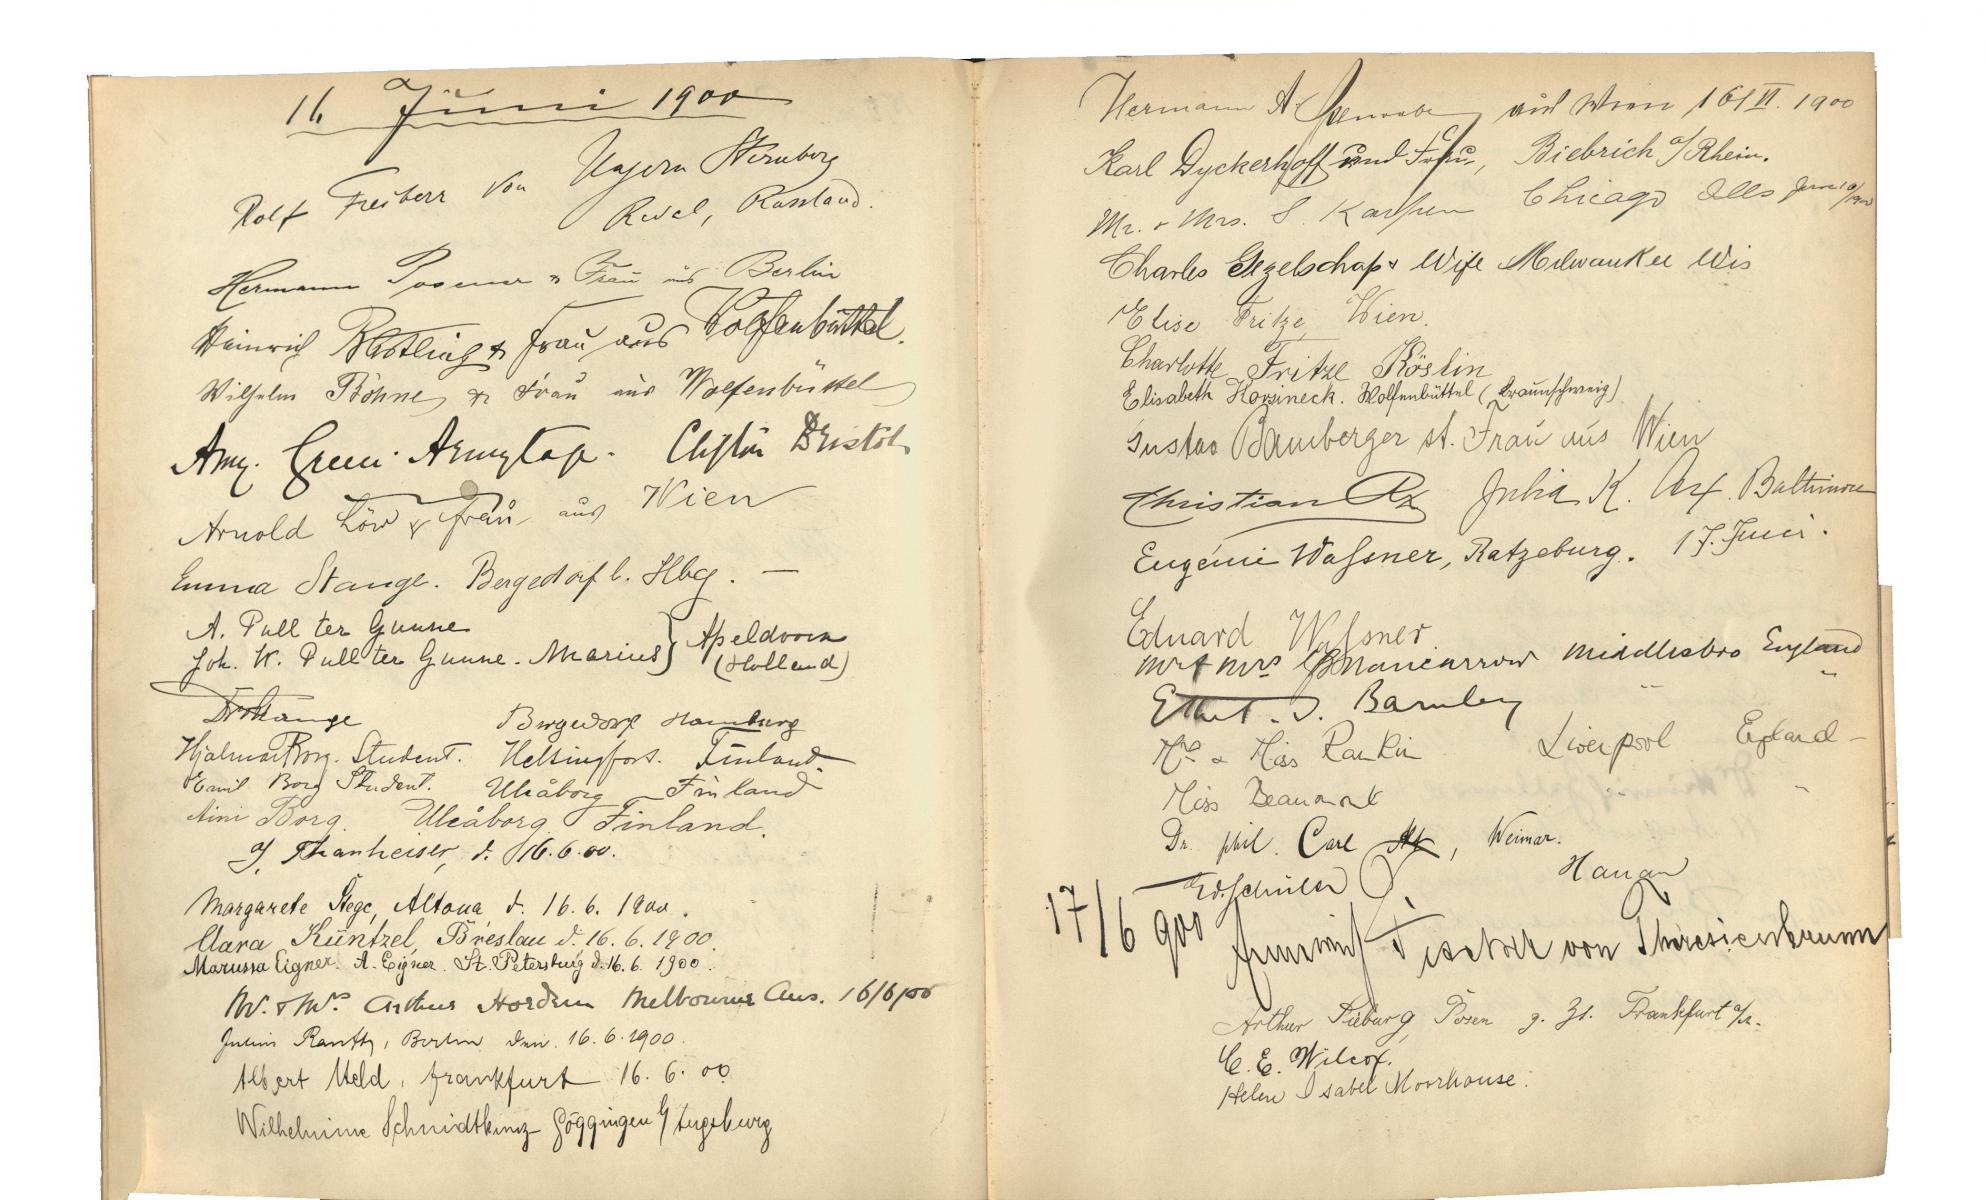 16. Juni 1900
Rolf Freiherr von Ungern Sternberg
Reval, Russland.
Hermann Posener & Frau aus Berlin
Heinrich & Frau aus Wolfenbüttel.
Wilhelm Böhne & Frau aus Wolfenbüttel
Amy. Green Armytage. Clifton Bristol
Arnold Löw & Frau aus Wien
Emma Stange. Bergedorf b. Hbg. —
A. Pull ter Gunne
Joh. W. Pull ter Gunne. Marius } Apeldoorn (Holland)
Dr Stange Bergedorf Hamburg
Hjalmar Borg. Student. Helsingfors. Finland.
Emil Borg Student. Uleåborg Finland
Aini Borg. Uleåborg Finland.
J. Thanheiser, d. 16.6.00.
Margarete Stege, Altona, d. 16.6.1900.
Clara Küntzel, Breslau d. 16.6.1900.
Marussa Eigner. A. Eigner. St. Petersburg d. 16.6.1900.
Mr. & Mrs Arthur Hordern Melbourne Aus. 16/6/00
Julius, Berlin den 16.6.1900.
Albert Held, Frankfurt 16.6.00
Wilhelmine Schmidtkunz Göggingen b/ Augsburg
Hermann A. aus Wien 16/VI. 1900
Karl Dyckerhoff und Frau, Biebrich a/Rhein.
Mr. & Mrs. S. Karpen Chicago Ills June 16/1900
Charles Gezelschap & Wife Milwaukee Wis
Elise Fritze, Wien.
Charlotte Fritze Köslin
Elisabeth Korsineck. Wolfenbüttel (Braunschweig)
Gustav Bamberger st. Frau aus Wien
Christian Ax Julia K. Ax. Baltimore
Eugénie Waßner, Ratzeburg. 17. Juni.
Eduard Waßner
Mr & Mrs Nancarrow Middlesbro England
Ethel. J. Barnley "
Mrs & Miss Rankin Liverpool England —
Miss Beaumont " "
Dr. phil. Carl, Weimar.
Ed. Schüler Hanau
17/6 900 Fischer von Theresienbrunn
Arthur Sieburg Posen z. Zt. Frankfurt a/M.
C. E. Wilcox.
Helen Isabel Moorhouse.